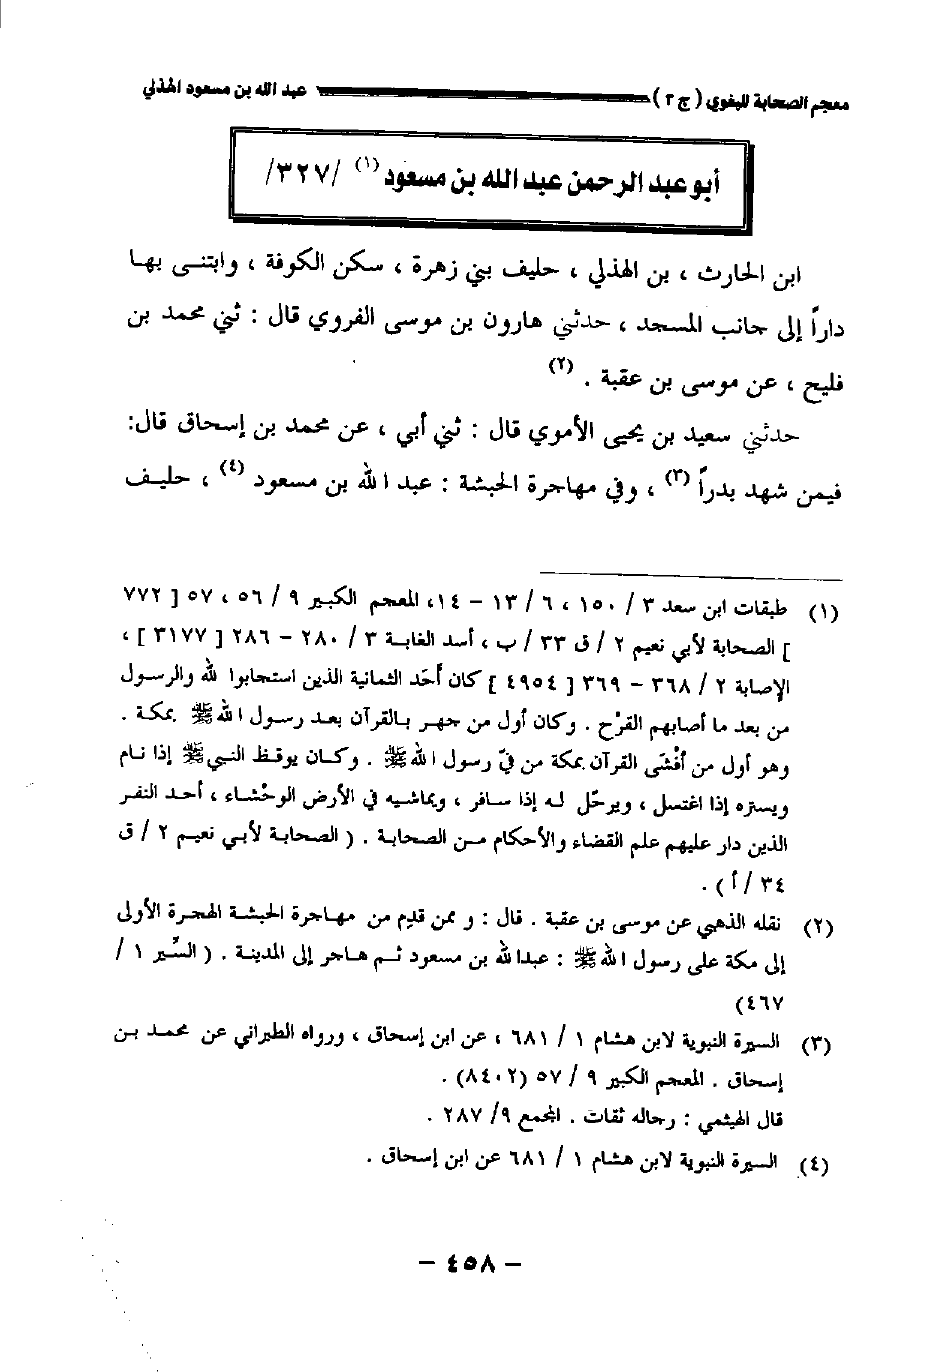 معجم الصحابة للبغوي ( ج ٣ ) عبد الله بن مسعود الهذلي
أبو عبد الرحمن عبد الله بن مسعود (١) /٣٢٧/
ابن الحارث ، بن الهذلي ، حليف بني زهرة ، سكن الكوفة ، وابتنى بها
داراً إلى جانب المسجد ، حدثني هارون بن موسى الفروي قال : ثني محمد بن
فليح ، عن موسى بن عقبة . (٢)
حدثني سعيد بن يحيى الأموي قال : ثني أبي ، عن محمد بن إسحاق قال:
فيمن شهد بدراً (٣) ، وفي مهاجرة الحبشة : عبد الله بن مسعود (٤) ، حليف
(١) طبقات ابن سعد ٣ / ١٥٠ ، ٦ / ١٣ – ١٤، المعجم الكبير ٩ / ٥٦ ، ٥٧ [ ٧٧٢
] الصحابة لأبي نعيم ٢ / ق ٣٣ / ب ، أسد الغابة ٣ / ٢٨٠ – ٢٨٦ [ ٣١٧٧ ] ،
الإصابة ٢ / ٣٦٨ – ٣٦٩ [ ٤٩٥٤ ] كان أحَد الثمانية الذين استجابوا لله والرسول
من بعد ما أصابهم القرْح . وكان أول من جهر بالقرآن بعد رسول الله ﷺ بمكة .
وهو أول من أفْشَى القرآن بمكة من فيّ رسول الله ﷺ . وكان يوقظ النبي ﷺ إذا نام
ويستره إذا اغتسل ، ويرحّل له إذا سافر ، ويماشيه في الأرض الوحْشاء ، أحد النفر
الذين دار عليهم علم القضاء والأحكام من الصحابة . ( الصحابة لأبي نعيم ٢ / ق
٣٤ / أ ) .
(٢) نقله الذهبي عن موسى بن عقبة . قال : و ممن قدِم من مهاجرة الحبشة الهجرة الأولى
إلى مكة على رسول الله ﷺ : عبدالله بن مسعود ثم هاجر إلى المدينة . ( السِّير ١ /
٤٦٧)
(٣) السيرة النبوية لابن هشام ١ / ٦٨١ ، عن ابن إسحاق ، ورواه الطبراني عن محمد بن
إسحاق . المعجم الكبير ٩ / ٥٧ (٨٤٠٢) .
قال الهيثمي : رجاله ثقات . المجمع ٩/ ٢٨٧ .
(٤) السيرة النبوية لابن هشام ١ / ٦٨١ عن ابن إسحاق .
– ٤٥٨ –